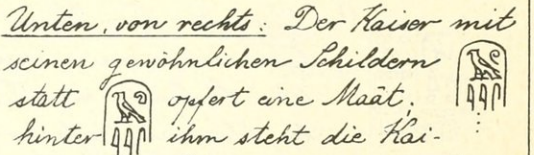 Unten, von rechts: Der Kaiser mit
seinen gewöhnlichen Schildern
statt opfert eine Maât,
hinter ihm steht die Kai-